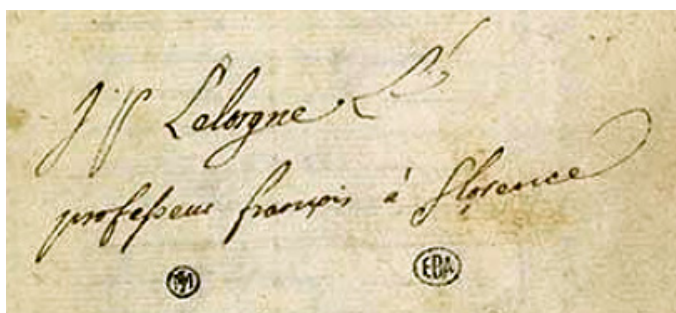 J. P. Lelorgne L.é
professeur françois à florence
EBA